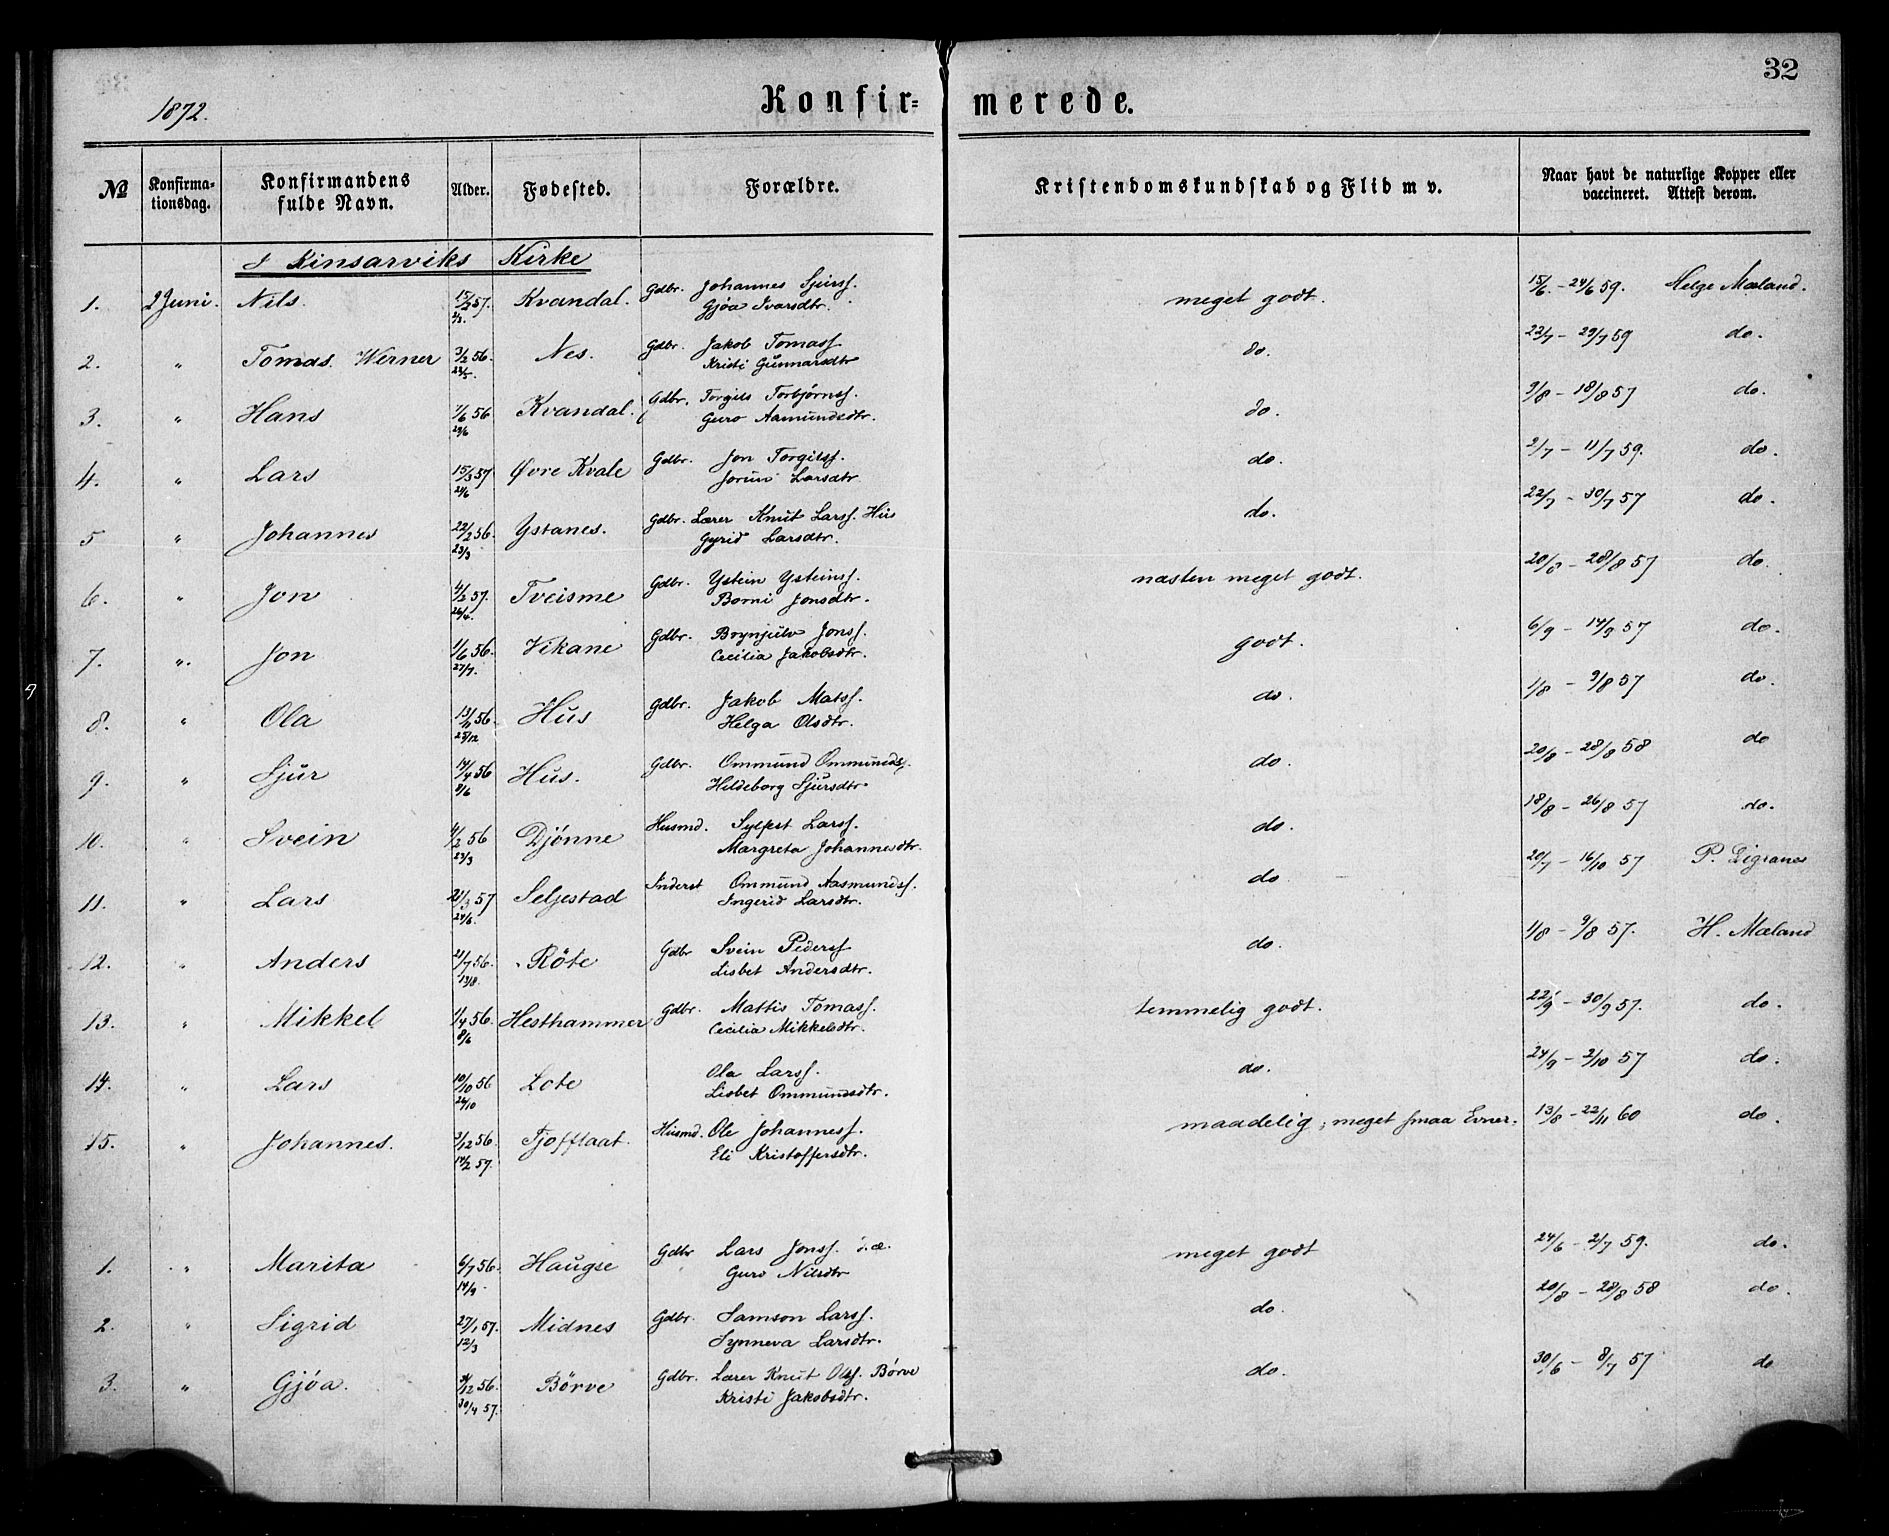 32
1872.
Konfir=merede.
№ Konfirma-tionsdag. Konfirmandens fulde Navn. Alder. Fødested. Forældre. Kristendomskundskab og Flid m v. Naar havt de naturlige Kopper eller vaccineret. Attest derom.
I Kinsarviks Kirke
1. 2 Juni. Nils. 15/2 57. Kvandal. Gdbr. Johannes Sjurss. meget godt. 15/6. - 24/6 59. Helge Mæland.
Gjøa Ivarsdtr.
2. " Tomas Werner 3/2 56. 23/5. Nes. Gdbr. Jakob Tomass. do. 22/7 - 29/7 59 do.
Kristi Gunnarsdtr
3. " Hans 7/6 56 29/6 Kvandal. Gdbr. Torgils Torbjørnss. do. 9/8 - 18/8 57 do.
Guro Aamundsdtr.
4. " Lars 15/3 57 24/6 Øvre Kvale Gdbr. Jon Torgilss. do. 2/7 - 11/7 59. do.
Jorun Larsdtr
5 " Johannes 22/2 56. 23/3 Ystanes. Gdbr. Lærer Knut Larss. Hus do. 22/7 - 30/7 57 do.
Gyrid Larsdtr.
6. " Jon 4/3 57. 26/4. Tveisme Gdbr. Ystein Ysteinss. næsten meget godt. 20/8 - 28/8 57 do.
Borni Jonsdtr.
7. " Jon 1/6 56. 27/7. Vikane Gdbr. Brynjulv Jonss. godt. 6/9 - 14/9 57 do.
Cecilia Jakobsdtr.
8. " Ola 13/11 56. 25/12 Hus Gdbr. Jakob Matss. do. 1/8 - 9/8 57 do.
Helga Olsdtr.
9. " Sjur 14/4 56 8/6 Hus. Gdbr. Ommund Ommundss. do. 20/8 - 28/8 58 do
Hildeborg Sjursdtr
10. " Svein 4/2 56 24/3 Djønne Husmd. Sylfest Larss. do. 18/8 - 26/8 57 do.
Margreta Johannesdtr.
11. " Lars 21/3 57 24/6. Seljestad Inderst Ommund Aasmundss. do 20/7 - 16/10 57 P. Digranes
Ingerid Larsdtr.
12. " Anders 21/7 56. 13/8. Röte Gdbr Svein Pederss do. 1/8 - 9/8 57. H. Mæland
Lisbet Andersdtr.
13. " Mikkel 1/4 56. 8/6 Hesthammer Gdbr. Mattis Tomass. temmelig godt. 22/9 - 30/9 57. do.
Cecilia Mikkelsdtr.
14. " Lars 10/10 56 26/10 Lote Ola Larss. do. 24/9 - 2/10 57 do.
Lisbet Ommundsdtr.
15. " Johannes. 3/12 56. 14/2 57. Tjoflaat. Husmd. Ole Johanness. maadelig; meget smaa Evner. 13/8 - 22/11 60 do.
Eli Kristoffersdtr.
1. " Marita 6/7 56. 14/9. Haugse Gdbr Lars Jonss. d.æ. meget godt 24/6 - 2/7 59. do.
Guro Nilsdtr
2. " Sigrid 27/1 57. 12/3 Midnes Gdbr. Samson Larss. do. 20/8 - 28/8 58 do.
Synneva Larsdtr.
3. " Gjøa. 31/12 56. 30/4 57. Börve Gdbr. Lærer Knut Olss. Börve do. 30/6 - 8/7 57 do
Kristi Jakobsdtr.